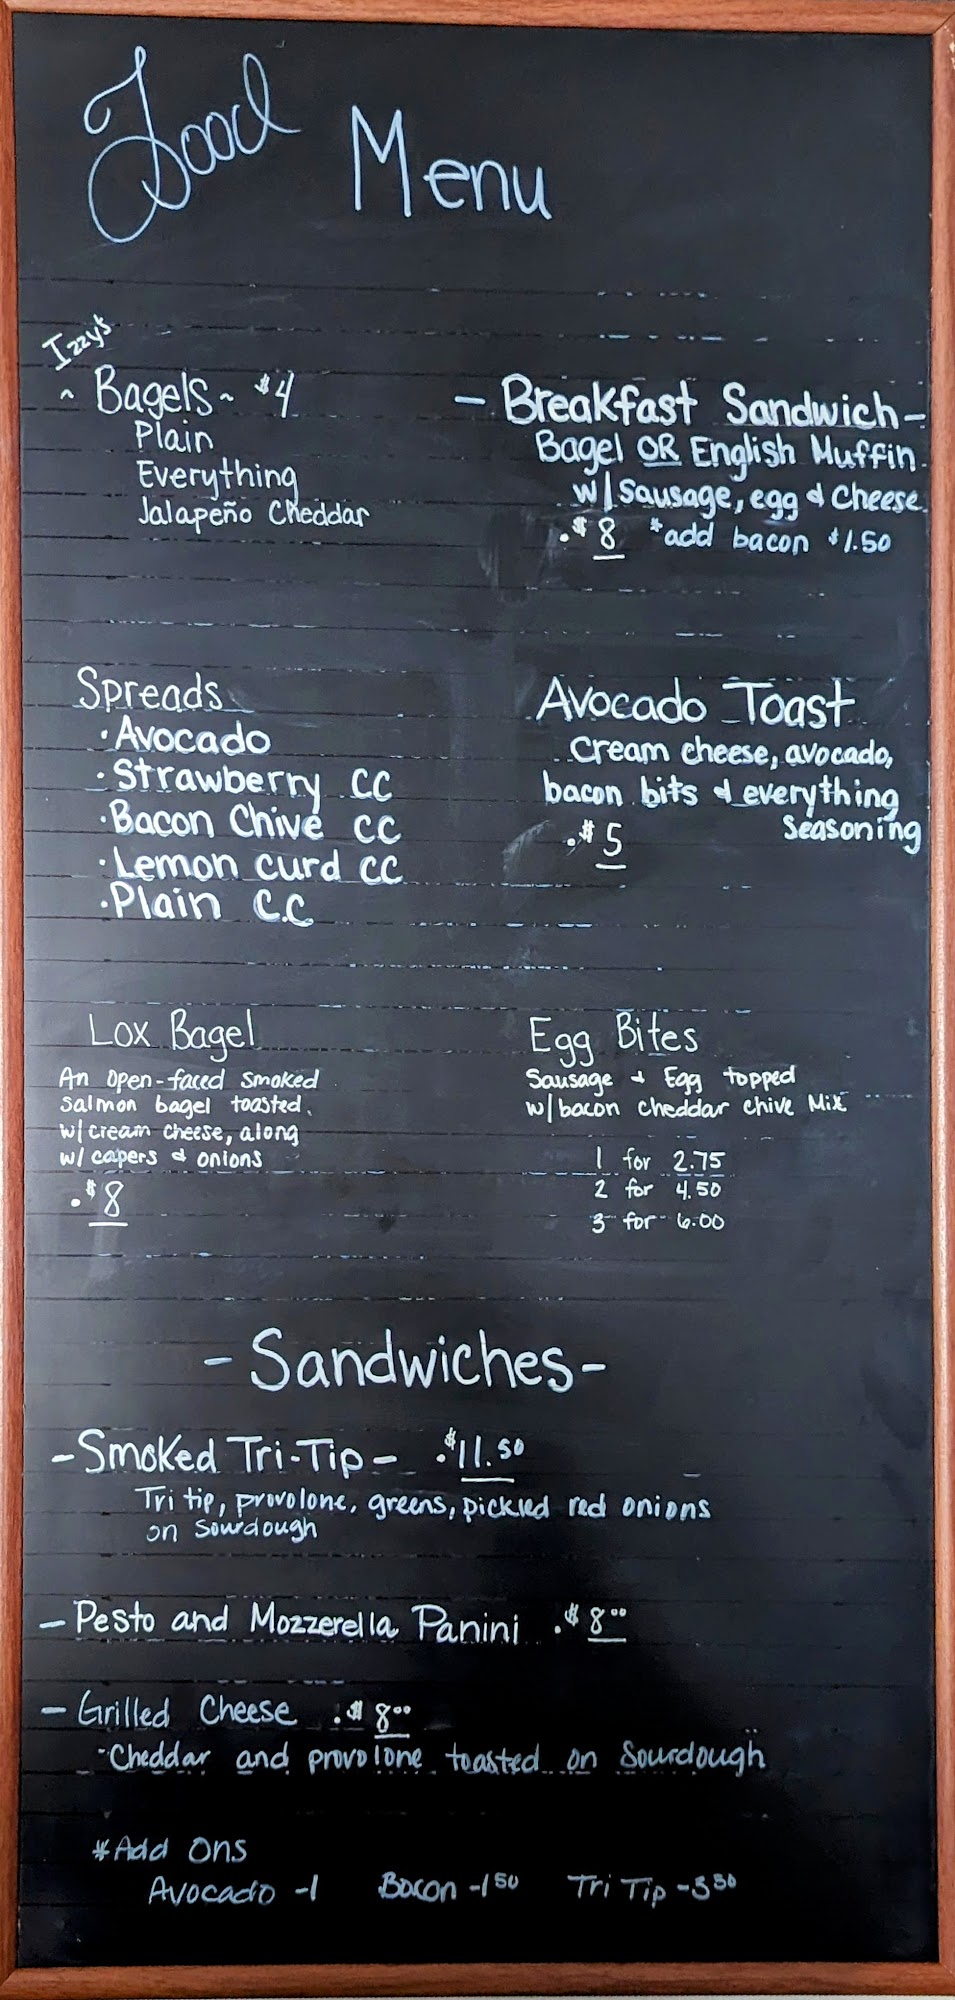 Food Menu
Izzy's
~ Bagels ~ $4
Plain
Everything
Jalapeño Cheddar
- Breakfast Sandwich -
Bagel OR English Muffin
w/ Sausage, egg & cheese
.$8 *add bacon $1.50
Spreads
· Avocado
· Strawberry CC
· Bacon Chive CC
· Lemon curd CC
· Plain C.C
Avocado Toast
Cream cheese, avocado,
bacon bits & everything
Seasoning
.$5
Lox Bagel
An open-faced smoked
salmon bagel toasted
w/ cream cheese, along
w/ capers & onions
.$8
Egg Bites
Sausage & Egg topped
w/ bacon cheddar chive Mix
1 for 2.75
2 for 4.50
3 for 6.00
- Sandwiches -
- Smoked Tri-Tip - .$11.50
Tri tip, provolone, greens, pickled red onions
on Sourdough
- Pesto and Mozzerella Panini .$8.00
- Grilled Cheese .$8.00
- Cheddar and provolone toasted on Sourdough
*Add Ons
Avocado -1 Bacon -1 50 Tri Tip -3 50